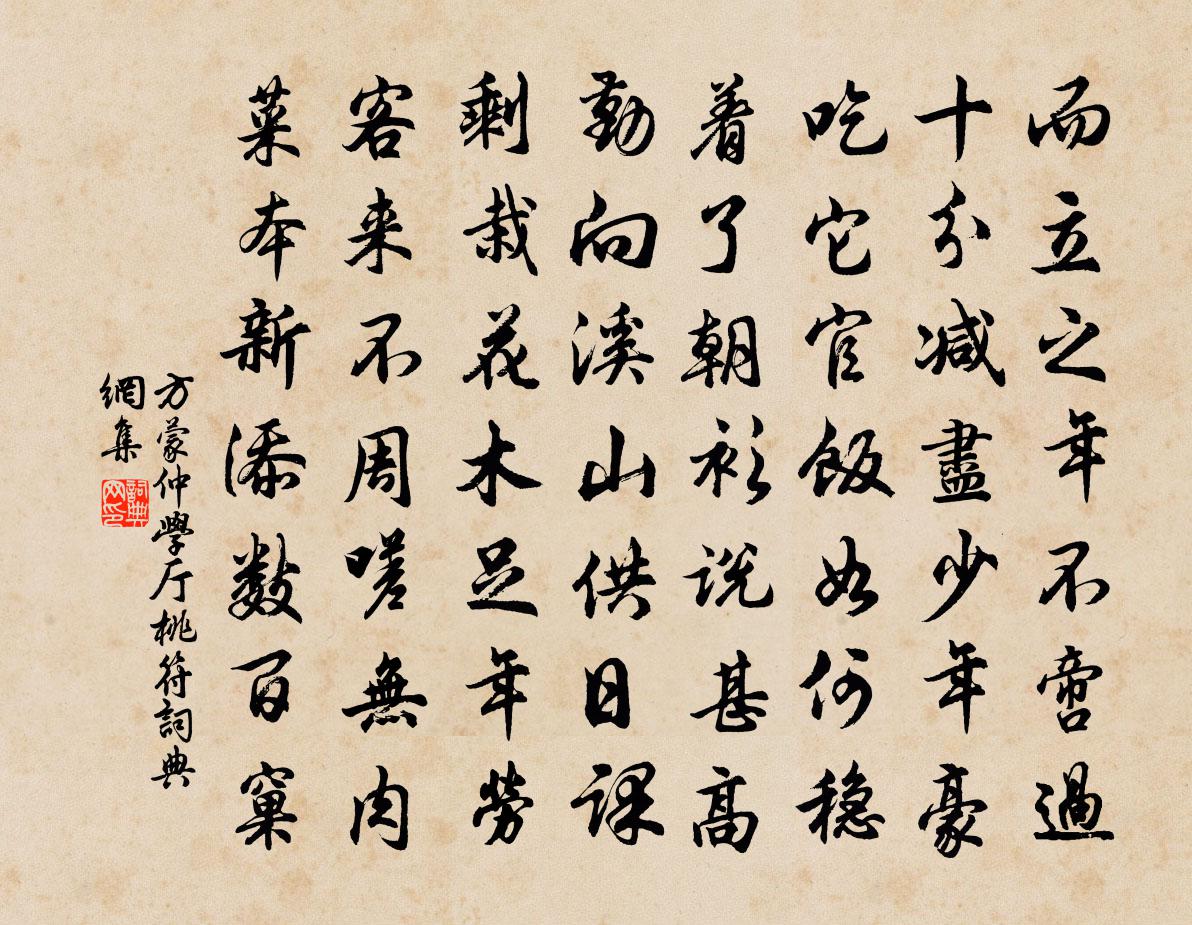 而立之年不啻過
十分减盡少年豪
吃它官飯如何穏
着了朝衫説甚高
勤向溪山供日課
剩栽花木足年勞
客来不周嗟無肉
菜本新添数百窠
方蒙仲學厅桃符詞典
網集
詞典
网印